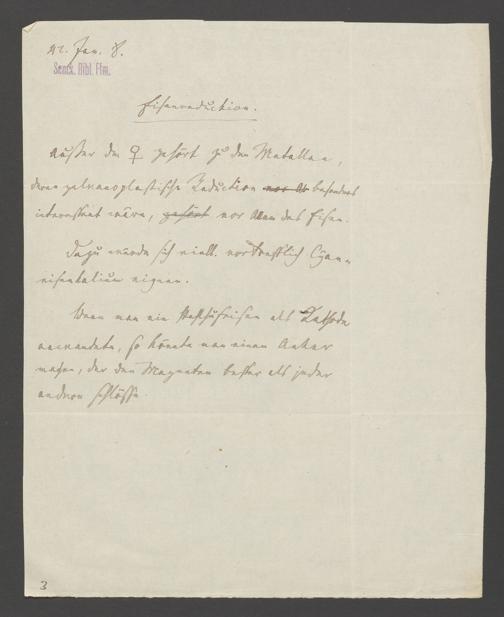 22. Jan. 8.
Senck. Bibl. Ffm.
Eisenreduction.
Außer der ♀ gehört zu den Metallen,
deren galvanoplastische Reduction vor besonders
interessant wäre, gehört vor Allem das Eisen.
Dazu würde sich vielleicht vortrefflich Cyan-
eisenkalium eignen.
Wenn man ein Hufeisen als Kathode
verwendete, so könnte man einen Anker
machen, der den Magneten besser als jeder
andere schlösse.
3